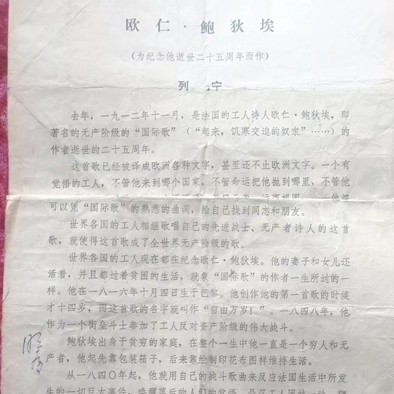 欧仁·鲍狄埃
(为纪念他逝世二十五周年而作)
列 宁
去年,一九一二年十一月,是法国的工人诗人欧仁·鲍狄埃,即
著名的无产阶级的“国际歌”(“起来,饥寒交迫的奴隶”……)的
作者逝世的二十五周年。
这首歌已经被译成欧洲各种文字,甚至还不止欧洲文字。一个有
觉悟的工人,不管他来到哪个国家,不管命运把他抛到哪里,不管他
可以凭“国际歌”的熟悉的曲调,给自己找到同志和朋友。
世界各国的工人相继歌唱自己的先进战士、无产者诗人的这首
歌,就使得这首歌成了全世界无产阶级的歌。
世界各国的工人现在都在纪念欧仁·鲍狄埃。他的妻子和女儿还
活着,并且都过着贫困的生活,就象“国际歌”的作者一生所过的一
样。他在一八一六年十月四日生于巴黎。他创作他的第一首歌的时候
才十四岁,而这首歌的名字就叫作“自由万岁!”。一八四八年,他
作为一个街垒斗士参加了工人反对资产阶级的伟大战斗。
鲍狄埃出身于贫穷的家庭,在整个一生中他一直是个穷人和无
产者,他起先靠包装箱子,后来靠绘制印花布图样维持生活。
从一八四0年起,他就用自己的战斗歌曲来反应法国生活中所发